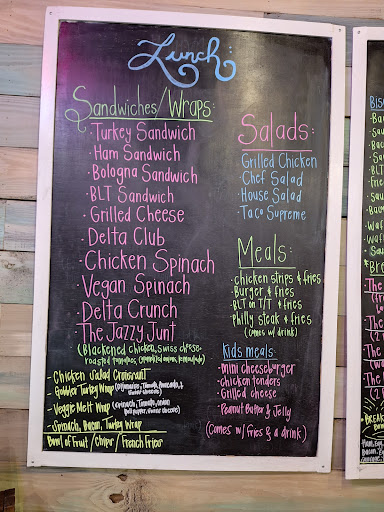 Lunch:
Sandwiches/Wraps:
· Turkey Sandwich
· Ham Sandwich
· Bologna Sandwich
· BLT Sandwich
· Grilled Cheese
· Delta Club
· Chicken Spinach
· Vegan Spinach
· Delta Crunch
· The Jazzy Junt
(Blackened chicken, swiss cheese,
roasted tomatoes,
- Chicken Salad Croissant
- Gobbler Turkey Wrap
- Veggie Melt Wrap (spinach, Tomato, onion
- Spinach, Bacon, Turkey Wrap
Bowl of Fruit / Chips / French Fries
Salads:
· Grilled Chicken
· Chef Salad
· House Salad
· Taco Supreme
Meals:
· chicken strips & fries
· Burger & fries
· BLT on T/T & fries
· Philly steak & fries
(Comes w/ drink)
Kids meals:
· mini cheeseburger
· chicken tenders
· Grilled cheese
· Peanut Butter & Jelly
(Comes w/ fries & a drink)